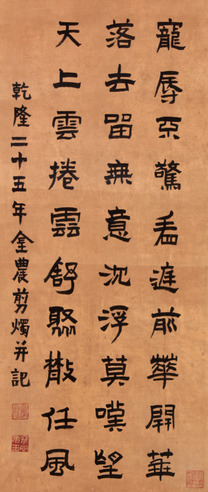 寵辱不驚看庭前華開華
落去留無意沈浮莫嘆望
天上雲捲雲舒聚散任風
乾隆二十五年金農剪燭并記